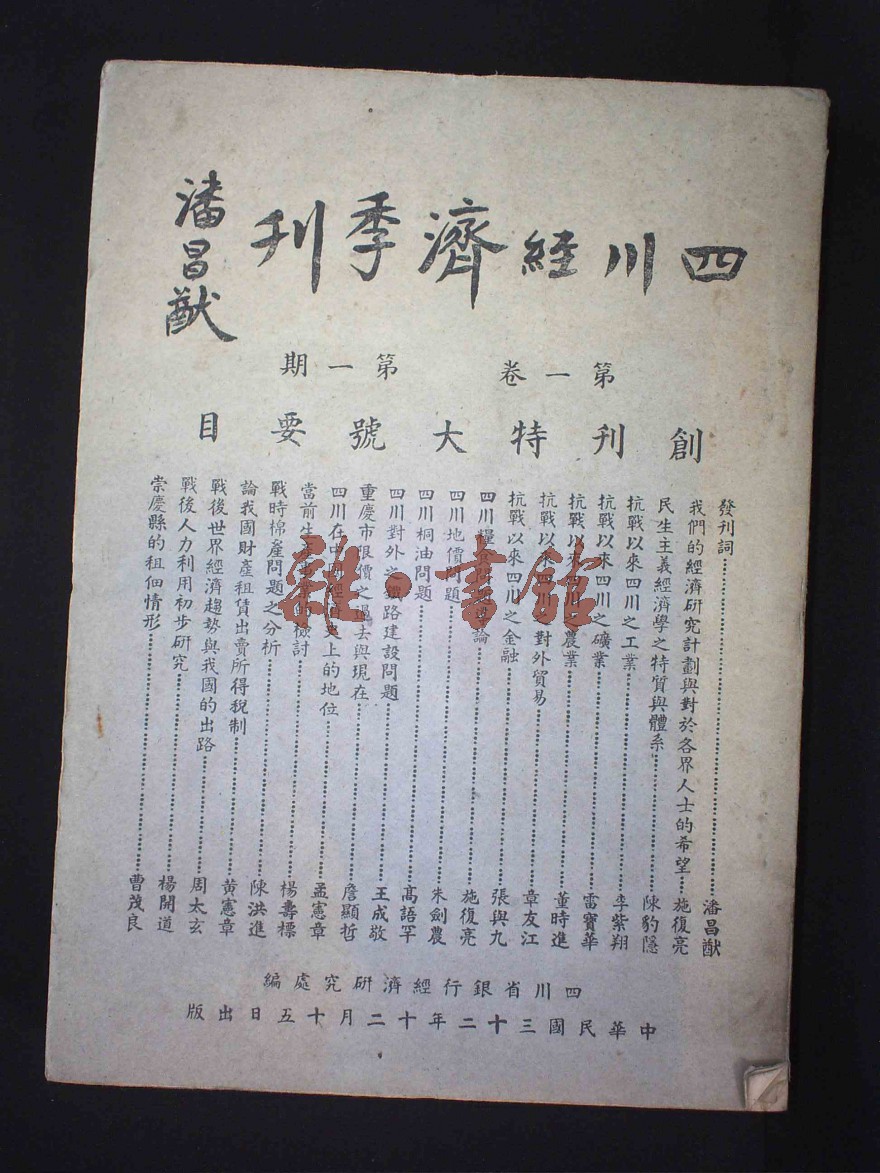 四川經濟季刊
潘昌猷
第一卷 第一期
創刊特大號要目
發刊詞……潘昌猷
我們的經濟研究計劃與對於各界人士的希望……施復亮
民生主義經濟學之特質與體系……陳豹隱
抗戰以來四川之工業……李紫翔
抗戰以來四川之礦業……雷寶華
抗戰以來四川之農業……董時進
抗戰以來四川之對外貿易……章友江
抗戰以來四川之金融……張與九
四川糧食問題導論……施復亮
四川地價問題……朱劍農
四川桐油問題……高語罕
四川對外之鐵路建設問題……王成敬
重慶市限價之過去與現在……詹顯哲
四川在中國經濟史上的地位……孟憲章
當前生產事業的檢討……楊壽標
戰時棉產問題之分析……陳洪進
論我國財產租賃出賣所得稅制……黃憲章
戰後世界經濟趨勢與我國的出路……周太玄
戰後人力利用初步研究……楊開道
崇慶縣的租佃情形……曹茂良
四川省銀行經濟研究處編
中華民國三十二年十二月十五日出版
雜·書館